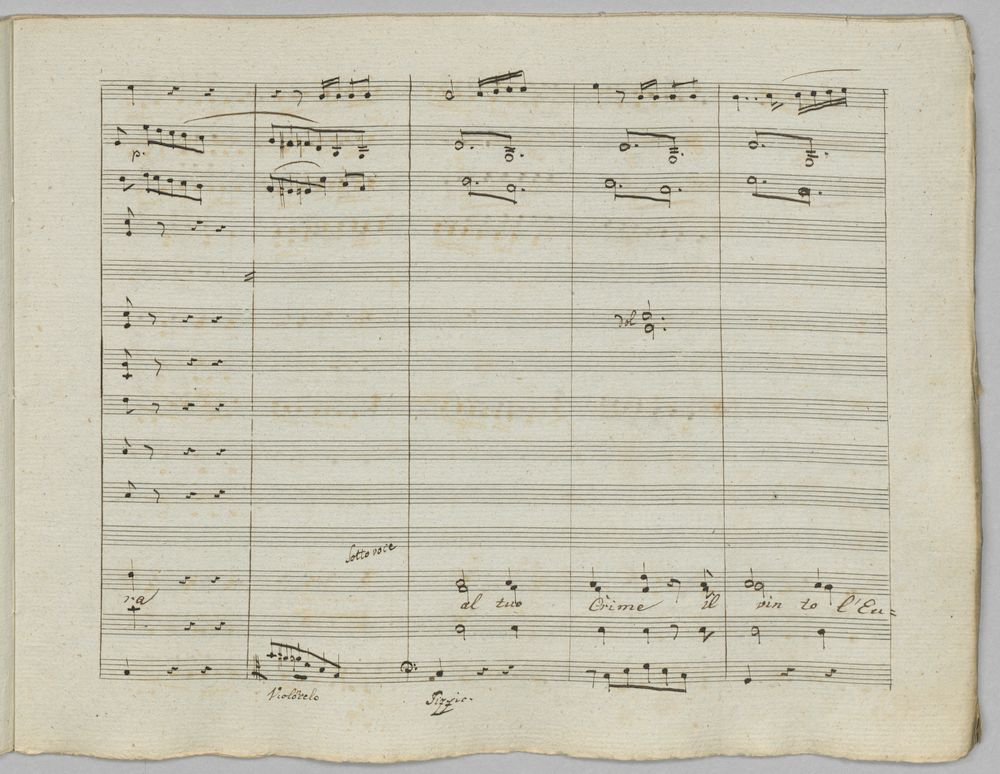 p.
dol
Sotto voce
ra al tuo Crime il vin to l'Eu=
Violõcelo
Pizzic.